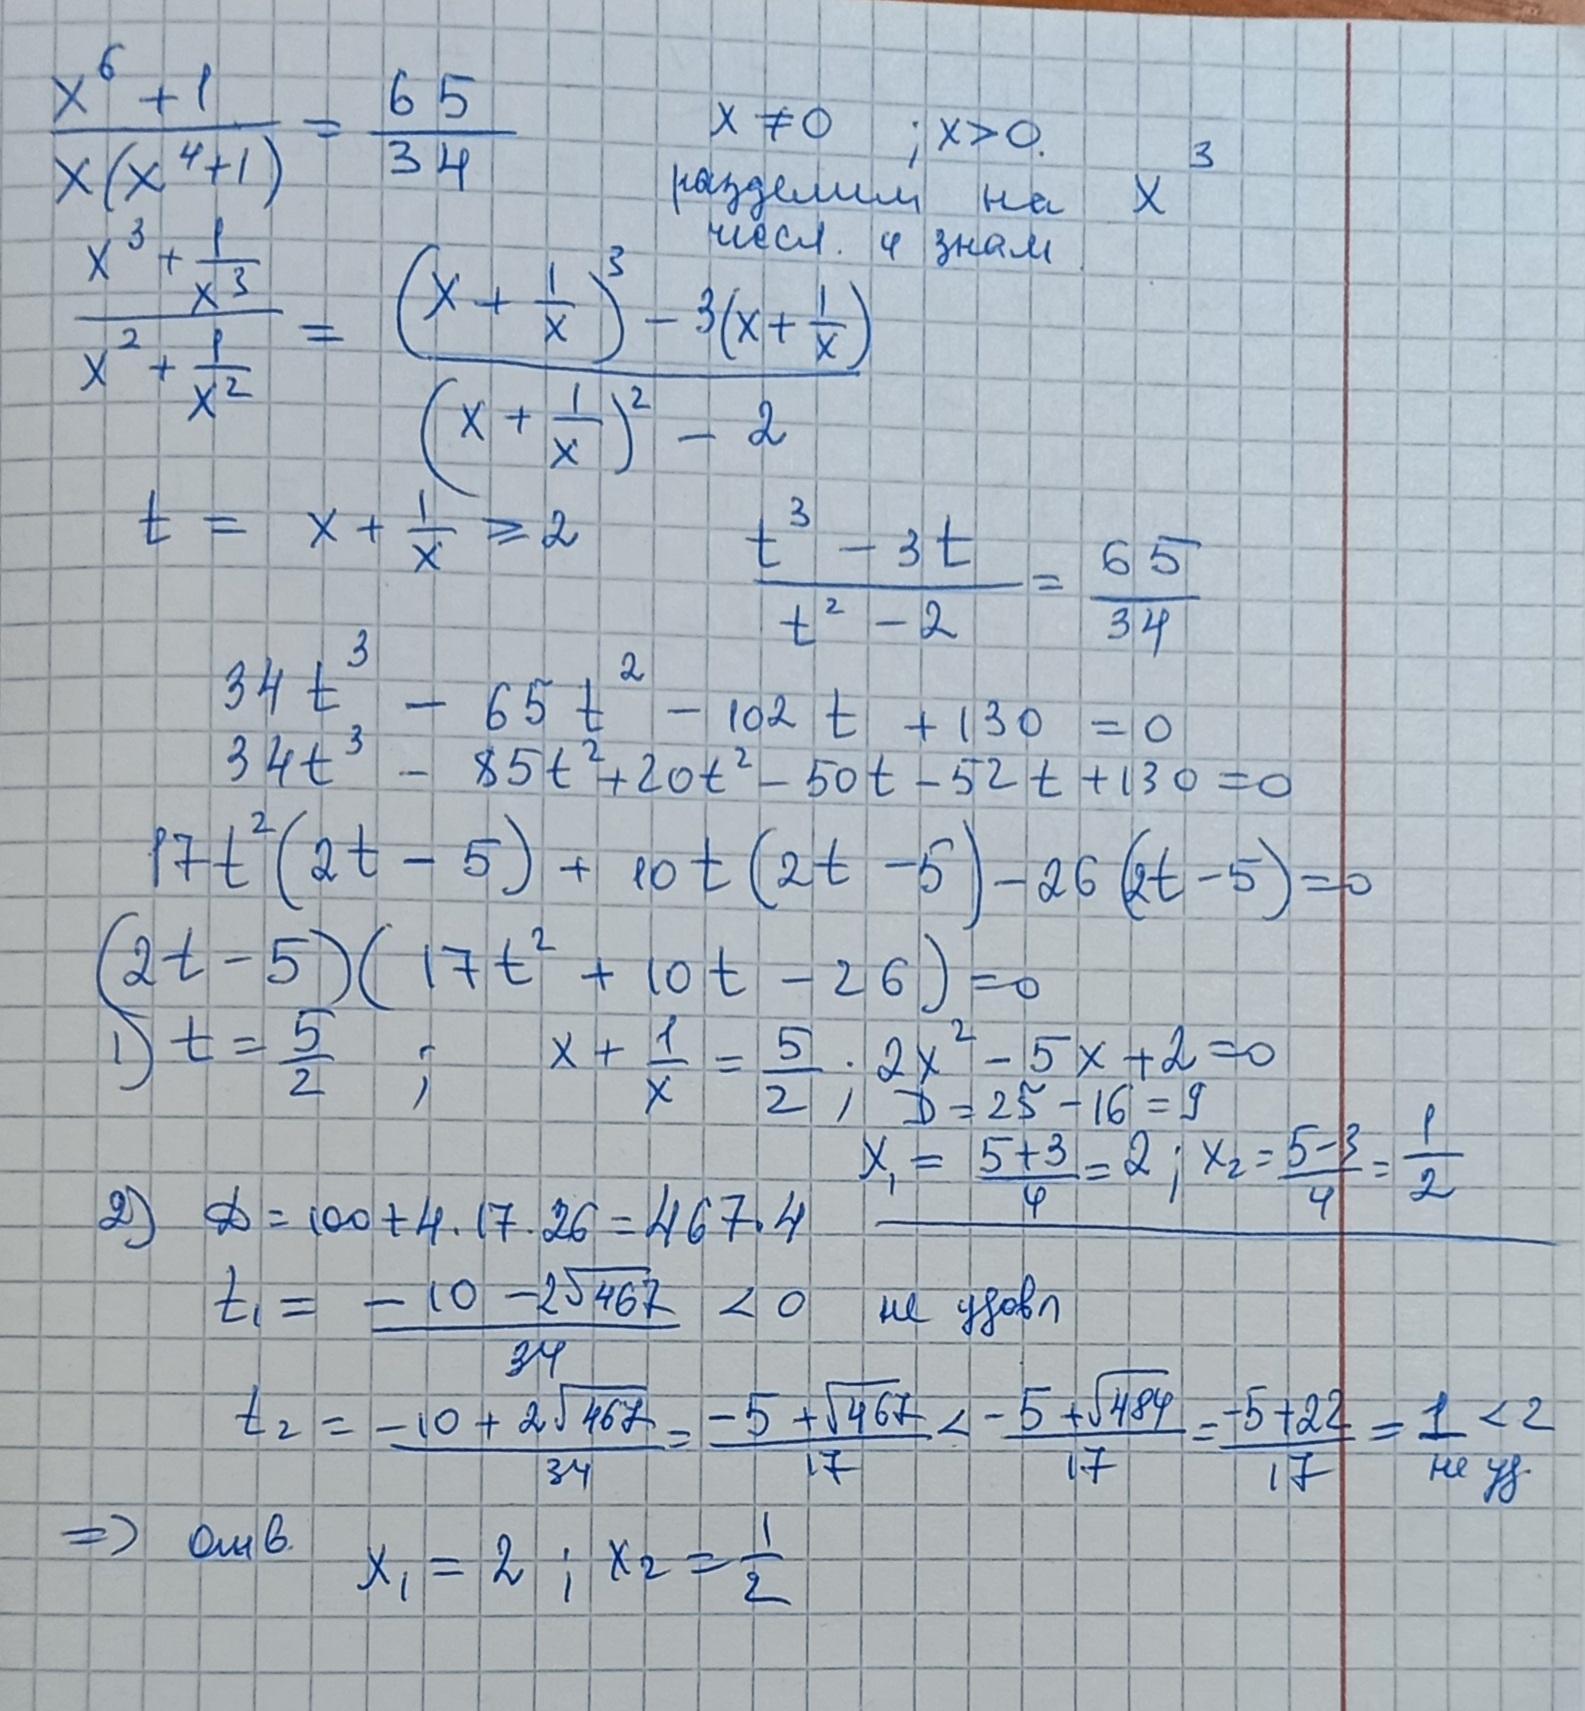 x⁶ + 1 / x(x⁴+1) = 65/34   x ≠ 0 ; x > 0.
разделим на x³
числ. и знам
(x³ + 1/x³) / (x² + 1/x²) = ((x + 1/x)³ - 3(x + 1/x)) / ((x + 1/x)² - 2)
t = x + 1/x ⩾ 2   (t³ - 3t) / (t² - 2) = 65/34
34t³ - 65t² - 102t + 130 = 0
34t³ - 85t² + 20t² - 50t - 52t + 130 = 0
17t²(2t - 5) + 10t(2t - 5) - 26(2t - 5) = 0
(2t - 5)(17t² + 10t - 26) = 0
1) t = 5/2 ; x + 1/x = 5/2 ; 2x² - 5x + 2 = 0
D = 25 - 16 = 9
x₁ = (5+3)/4 = 2 ; x₂ = (5-3)/4 = 1/2
2) D = 100 + 4·17·26 = 467·4
t₁ = (-10 - 2√467)/34 < 0 не удовл
t₂ = (-10 + 2√467)/34 = (-5 + √467)/17 < (-5 + √484)/17 = (-5+22)/17 = 1 < 2
не уд.
=> отв. x₁ = 2 ; x₂ = 1/2